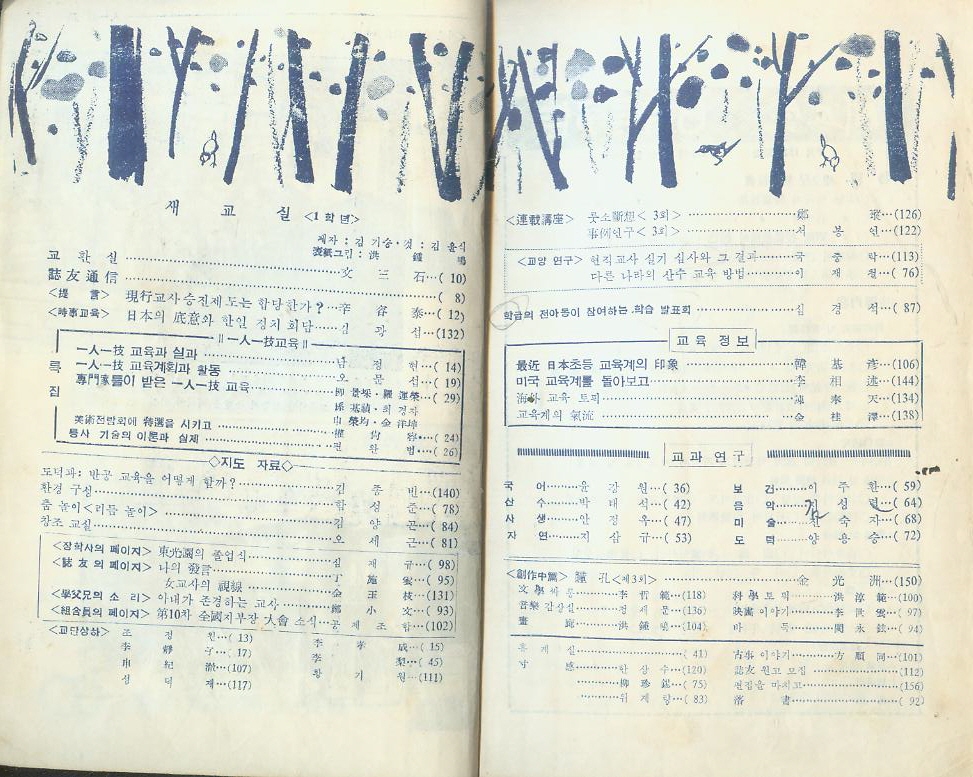 새 교 실 <1학년>
제자 : 김 기승 · 컷 : 김 윤식
表紙그림 : 洪 鍾 鳴
교 환 실 ………… 文 三 石…( 10)
誌友通信 ………… ( 8)
<提 言> 現行교사승진제도는 합당한가?…辛 容 泰…( 12)
<時事교육> 日本의 底意와 한일 정치 회담……김 광 섭…(132)
특 집
‖一人一技교육‖
一人一技 교육과 실과………… 남 정 현…( 14)
一人一技 교육계획과 활동………… 오 문 섭…( 19)
専門家들이 받은 一人一技 교육………… ( 29)
최경자
美術전람회에 特選을 시키고………… ( 24)
특사 기술의 이론과 실제………… ( 26)
◇지도 자료◇
도덕과: 반공 교육을 어떻게 할까?……김 종 빈…(140)
환경 구성………… 함 성 준…( 78)
춤 놀이<리듬 놀이>………… 김 양 곤…( 84)
창조 교실………… 오 세 근…( 81)
<장학사의 페이지> 東光園의 졸업식………… 심 재 규…( 98)
<誌友의 페이지> 나의 發言………… 丁 施 ( 95)
女교사의 視線………… 金 王 枝…(131)
<學父兄의 소리> 아내가 존경하는 교사………… 鄭 小 文…( 93)
<組合長의 페이지> 第10차 全國지부장 大會 소식…공 제 조 합…(102)
<교단상하> 조 정 원…( 13) 李 孝 成…( 15)
李 靜 子…( 17) 李 ( 45)
申 紀 澈…(107) 창 기 원…(111)
성 덕 제…(117)
<連載講座> 풋소斷想< 3회>………… 鄭 (126)
事例연구< 3회>………… 서 봉 연…(122)
<교양 연구> 현직교사 실기 심사와 그 결과……국 중 탁…(113)
다른 나라의 산수 교육 방법………… 이 재 철…( 76)
학급의 전아동이 참여하는 학습 발표회………… 심 경 석…( 87)
교육 정보
最近 日本초등 교육계의 印象………… 韓 基 彦…(106)
미국 교육계를 돌아보고………… 李 相 (144)
海外 교육 토픽………… 奉 天…(134)
교육계의 氣流………… 金 桂 澤…(138)
교과 연구
국 어……윤 강 원…( 36) 보 건……이 주 환…( 59)
산 수……박 대 석…( 42) 음 악……김 성 ( 64)
사 생……안 정 옥…( 47) 미 술……천 숙 자…( 68)
자 연……지 삼 규…( 53) 도 덕……양 용 승…( 72)
<創作中篇> 瞳 孔<제3회>………… 金 光 洲…(150)
文學싸롱……李 哲 範…(118) 科學토픽……洪 淳 範…(100)
音樂감상실……정 세 문…(136) 映畵이야기……李 世 (97)
畫 廊……洪 鍾 鳴…(104) 바 둑……閔 永 (94)
휴 게 실…………( 41) 古事이야기……方 順 同…(101)
寸 感……한 상 수…(120) 誌友원고모집…………(112)
柳 珍 ( 75) 편집을 마치고…………(156)
위 계 랑…( 83) 落 書…………( 92)